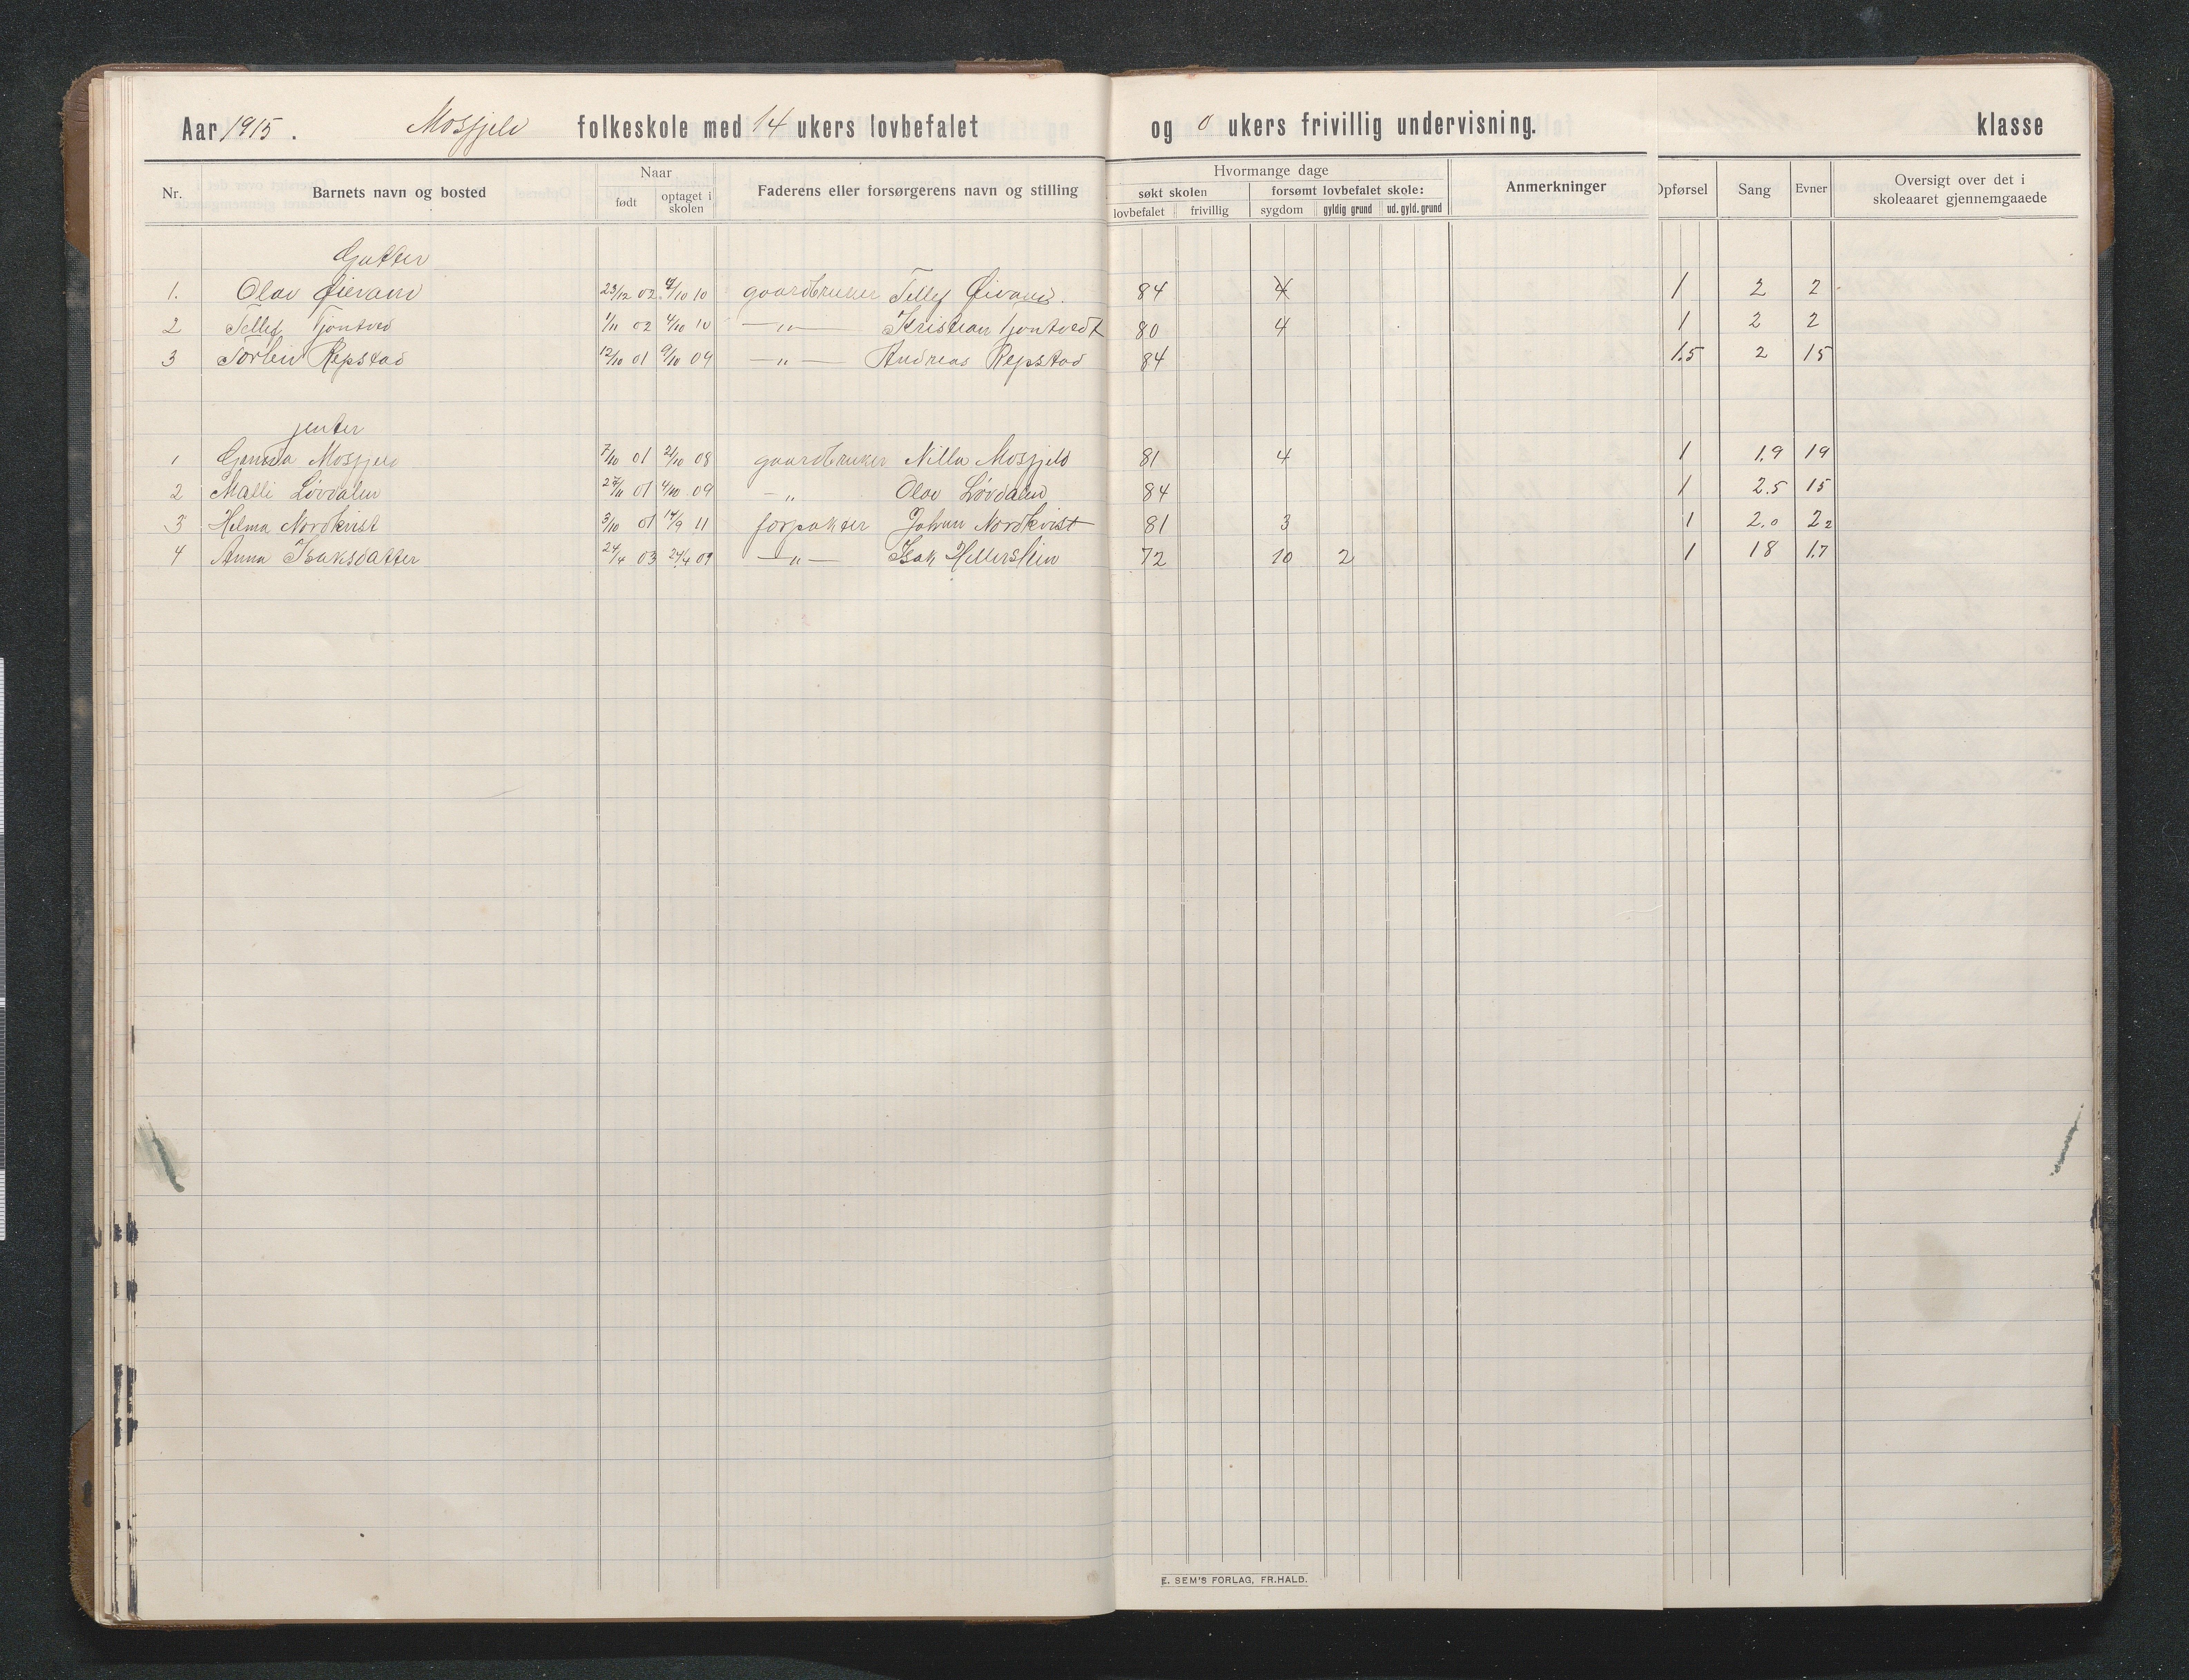 Aar 1915. Mosfjeld folkeskole med 14 ukers lovbefalet og 0 ukers frivillig undervisning. klasse
Nr. Barnets navn og bosted Naar Faderens eller forsørgerens navn og stilling Hvormange dage Anmerkninger Opførsel Sang Evner Oversigt over det i skoleaaret gjennemgaaede
født optaget i skolen søkt skolen forsømt lovbefalet skole:
lovbefalet frivillig sygdom gyldig grund ud. gyld. grund
Gutter
1. Olav Øievand 23/12 02 4/10 10 gaardbruker Tellef Øivand. 84 4 1 2 2
2 Tellef Tjøntved 1/11 02 4/10 10 —"— Kristian Tjøntvedt 80 4 1 2 2
3 Torbin Repstad 12/10 01 9/10 09 —"— Andreas Repstad 84 1.5 2 15
jenter
1 Mosfjeld 7/10 01 21/10 08 gaardbruker Nilla Mosfjeld 81 4 1 1.9 19
2 Malli Løvdalen 27/11 01 4/10 09 —"— Olav Løvdalen 84 1 2.5 15
3 Helma Nordkvist 3/10 01 14/9 11 forpakter Johan Nordkvist 81 3 1 2.0 22
4 Anna Isaksdatter 24/4 03 24/4 09 —"— Isak Hellerslien 72 10 2 1 18 1.7
E. SEM'S FORLAG, FR.HALD.